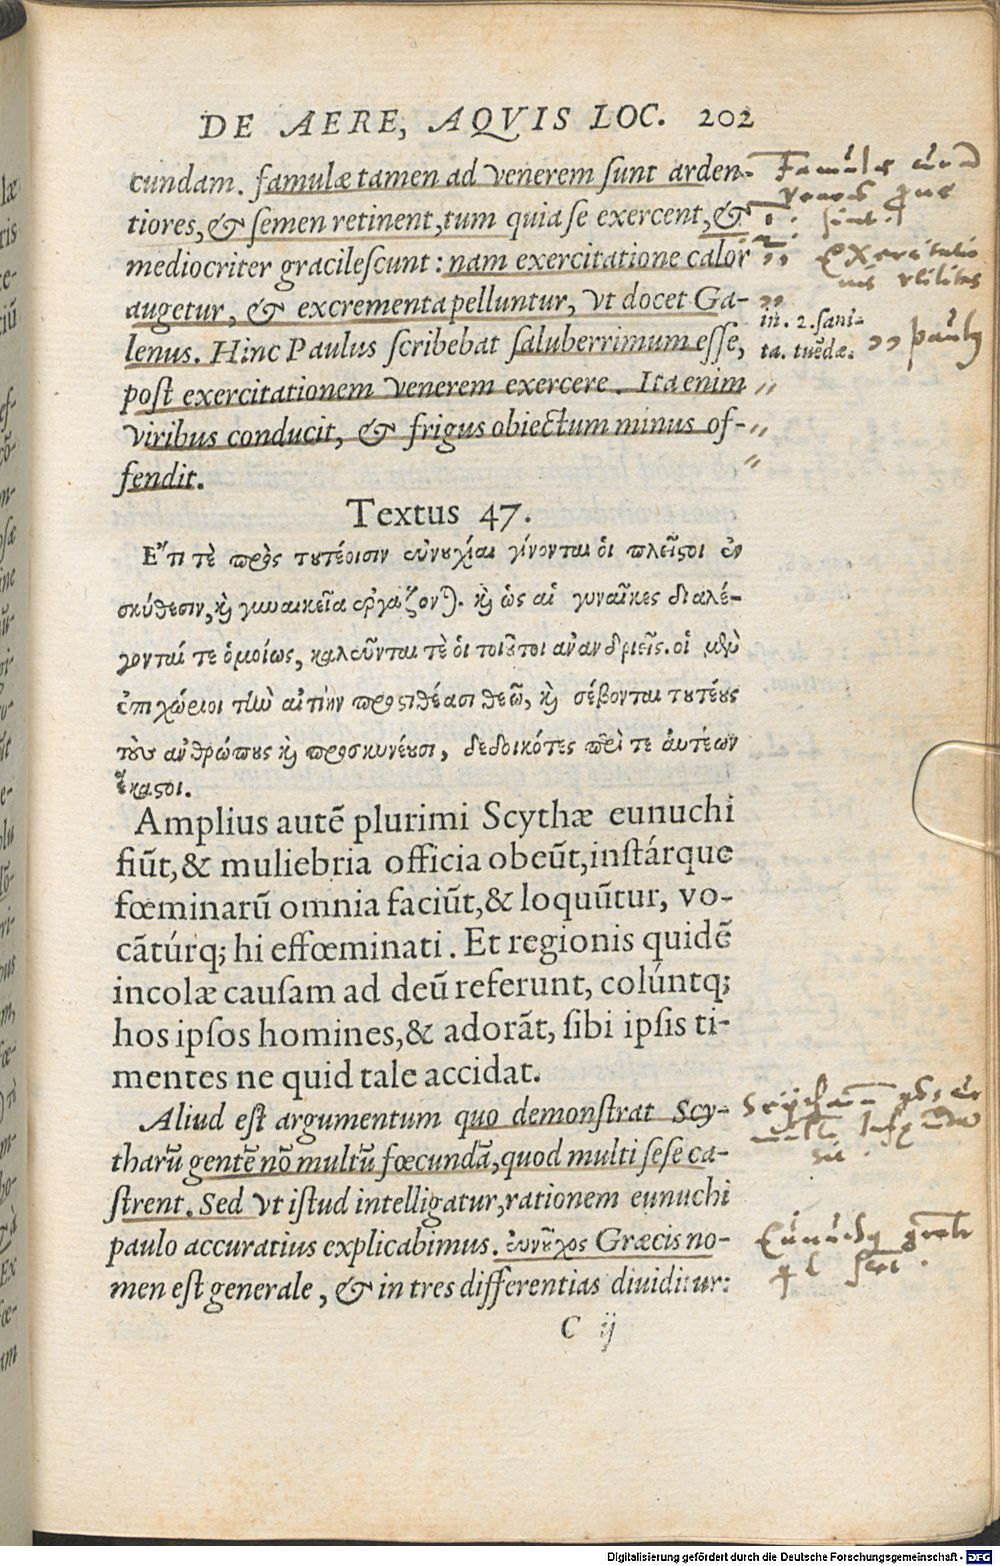 DE AERE, AQVIS LOC. 202
cundam. famulæ tamen ad venerem sunt arden-
tiores, & semen retinent, tum quia se exercent, &
mediocriter gracilescunt: nam exercitatione calor
augetur, & excrementa pelluntur, vt docet Ga-
lenus. Hinc Paulus scribebat saluberrimum esse,
post exercitationem venerem exercere. Ita enim
viribus conducit, & frigus obiectum minus of-
fendit.
in. 2. sani-
ta. tuēdæ.
Textus 47.
Ἔτι τὲ πρὸς τουτέοισιν εὐνουχίαι γίνονται οἱ πλεῖστοι ἐν
σκύθεσιν, καὶ γυναικεῖα ἐργάζονται. καὶ ὡς αἱ γυναῖκες διαλέ-
γονταί τε ὁμοίως, καλεῦνται τὲ οἱ τοιοῦτοι ἀνανδριεῖς. οἱ μὲν
ἐπιχώριοι τὴν αἰτίην προστιθέασι θεῶ, καὶ σέβονται τουτέους
τοὺς ἀνθρώπους καὶ προσκυνέουσι, δεδοικότες περὶ τε ἑωυτέων
ἕκαστοι.
Amplius autē plurimi Scythæ eunuchi
fiūt, & muliebria officia obeūt, instárque
fœminarū omnia faciūt, & loquūtur, vo-
cātúrq; hi effœminati. Et regionis quidē
incolæ causam ad deū referunt, colúntq;
hos ipsos homines, & adorāt, sibi ipsis ti-
mentes ne quid tale accidat.
Aliud est argumentum quo demonstrat Scy-
tharū gentē nō multū fœcundā, quod multi sese ca-
strent. Sed vt istud intelligatur, rationem eunuchi
paulo accuratius explicabimus. ἐυνοῦχος Græcis no-
men est generale, & in tres differentias diuiditur:
C ij
Famulæ
Exercitatio
nis vtilitas
Paulus
Digitalisierung gefördert durch die Deutsche Forschungsgemeinschaft - DFG